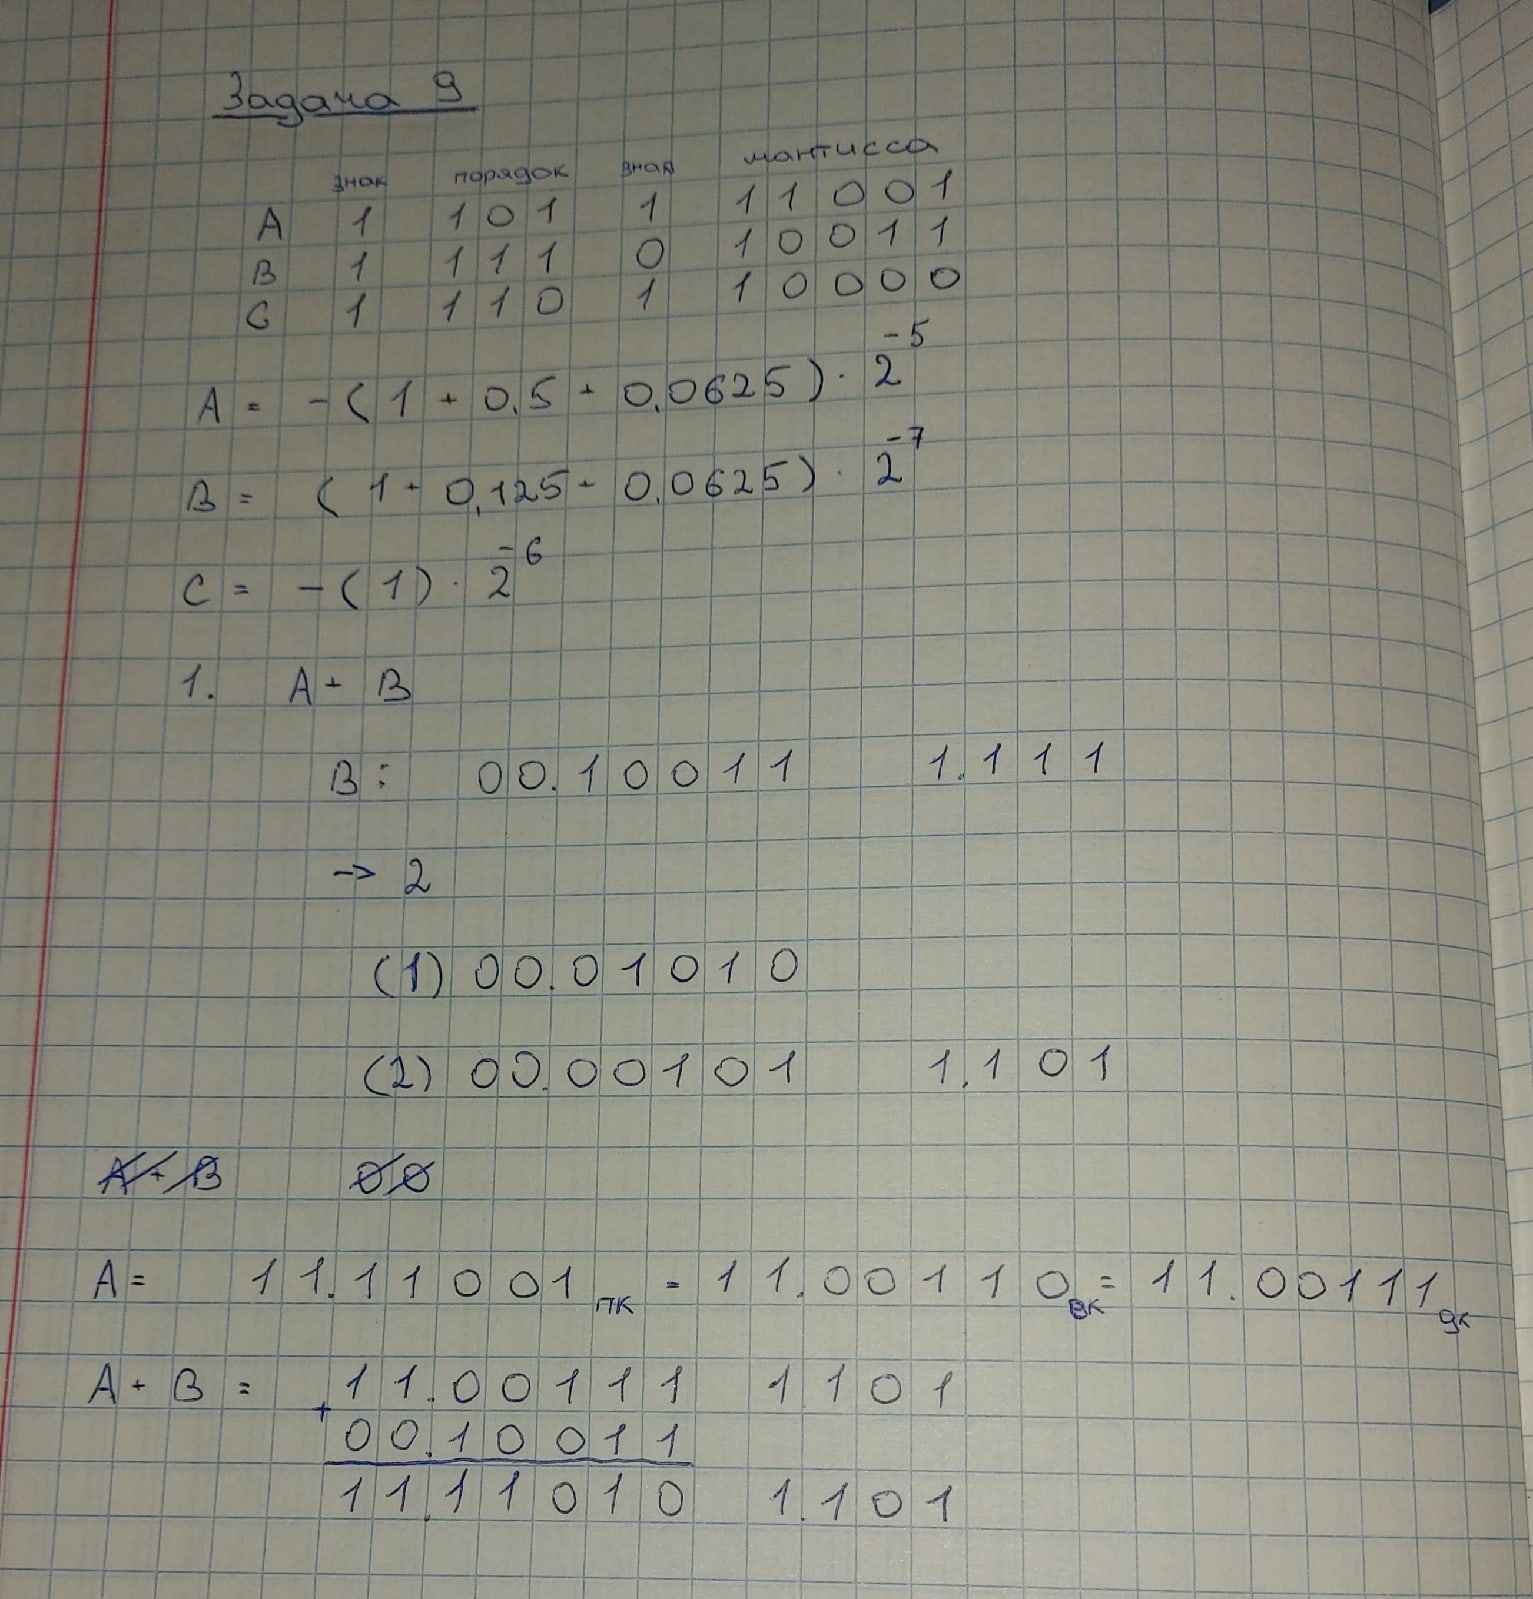 Задача 9
знак порядок знак мантисса
A 1 1 0 1 1 1 1 0 0 1
B 1 1 1 1 0 1 0 0 1 1
C 1 1 1 0 1 1 0 0 0 0
A = -(1 + 0,5 + 0,0625) · 2^-5
B = (1 + 0,125 + 0,0625) · 2^-7
C = -(1) · 2^-6
1. A + B
B: 00.10011 1.111
-> 2
(1) 00.01010
(2) 00.00101 1.101
A + B 00
A = 11.11001 пк = 11.00110 вк = 11.00111 дк
A + B = 11.00111 1101
+ 00.10011
11.11010 1.101